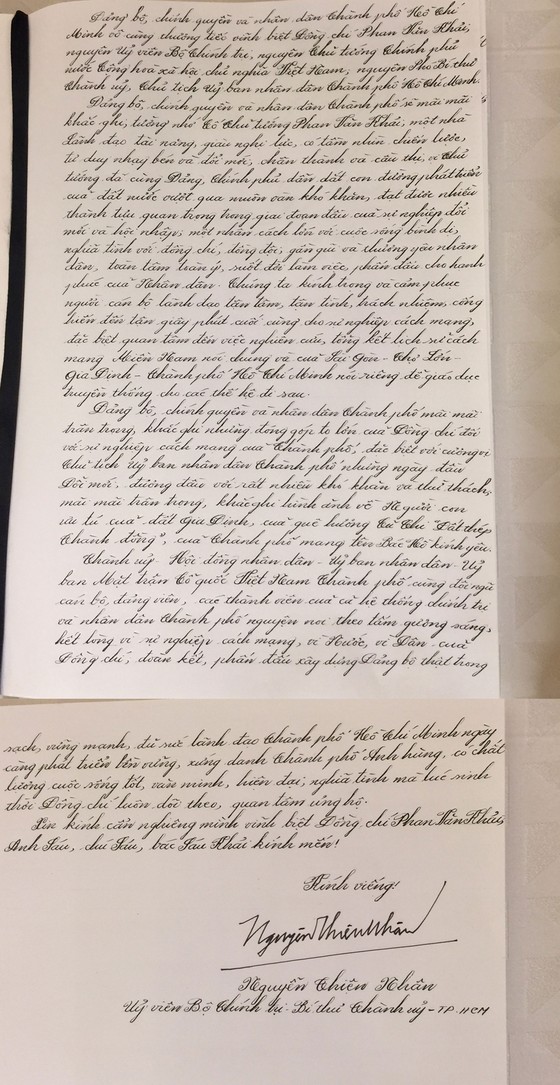 Đảng bộ, chính quyền và nhân dân Thành phố Hồ Chí
Minh vô cùng thương tiếc vĩnh biệt Đồng chí Phan Văn Khải,
nguyên Uỷ viên Bộ Chính trị, nguyên Thủ tướng Chính phủ
nước Cộng hoà xã hội chủ nghĩa Việt Nam, nguyên Phó Bí thư
Thành uỷ, Chủ tịch Uỷ ban nhân dân Thành phố Hồ Chí Minh.
Đảng bộ, chính quyền và nhân dân Thành phố sẽ mãi mãi
khắc ghi, tưởng nhớ Cố Thủ tướng Phan Văn Khải, một nhà
lãnh đạo tài năng, giàu nghị lực, có tầm nhìn chiến lược,
tư duy nhạy bén và đổi mới, chân thành và cầu thị, vị Thủ
tướng đã cùng Đảng, Chính phủ dẫn dắt con đường phát triển
của đất nước vượt qua muôn vàn khó khăn, đạt được nhiều
thành tựu quan trọng trong giai đoạn đầu của sự nghiệp đổi
mới và hội nhập; một nhân cách lớn với cuộc sống bình dị,
nghĩa tình với đồng chí, đồng đội, gần gũi và thương yêu nhân
dân, toàn tâm toàn ý, suốt đời làm việc, phấn đấu cho hạnh
phúc của Nhân dân. Chúng ta kính trọng và cảm phục
người cán bộ lãnh đạo tận tâm, tận tình, trách nhiệm, cống
hiến đến tận giây phút cuối cùng cho sự nghiệp cách mạng,
đặc biệt quan tâm đến việc nghiên cứu, tổng kết lịch sử cách
mạng Miền Nam nói chung và của Sài Gòn - Chợ Lớn -
Gia Định - Thành phố Hồ Chí Minh nói riêng để giáo dục
truyền thống cho các thế hệ đi sau.
Đảng bộ, chính quyền và nhân dân Thành phố mãi mãi
trân trọng, khắc ghi những đóng góp to lớn của Đồng chí đối
với sự nghiệp cách mạng của Thành phố, đặc biệt với cương vị
Chủ tịch Uỷ ban nhân dân Thành phố những ngày đầu
Đổi mới, đương đầu với rất nhiều khó khăn và thử thách;
mãi mãi trân trọng, khắc ghi hình ảnh về Người con
ưu tú của đất Gia Định, của quê hương Củ Chi "Đất thép
Thành đồng", của Thành phố mang tên Bác Hồ kính yêu.
Thành uỷ - Hội đồng nhân dân - Uỷ ban nhân dân - Uỷ
ban Mặt trận Tổ quốc Việt Nam Thành phố cùng đội ngũ
cán bộ, đảng viên, các thành viên của cả hệ thống chính trị
và nhân dân Thành phố nguyện noi theo tấm gương sáng,
hết lòng vì sự nghiệp cách mạng, vì Nước, vì Dân của
Đồng chí, đoàn kết, phấn đấu xây dựng Đảng bộ thật trong
sạch, vững mạnh, đủ sức lãnh đạo Thành phố Hồ Chí Minh ngày
càng phát triển bền vững, xứng danh Thành phố Anh hùng, có chất
lượng cuộc sống tốt, văn minh, hiện đại, nghĩa tình mà lúc sinh
thời Đồng chí luôn dõi theo, quan tâm ủng hộ.
Xin kính cẩn nghiêng mình vĩnh biệt Đồng chí Phan Văn Khải,
Anh Sáu, chú Sáu, bác Sáu Khải kính mến!
Kính viếng!
Nguyễn Thiện Nhân
Nguyễn Thiện Nhân
Uỷ viên Bộ Chính trị - Bí thư Thành uỷ - TP. HCM